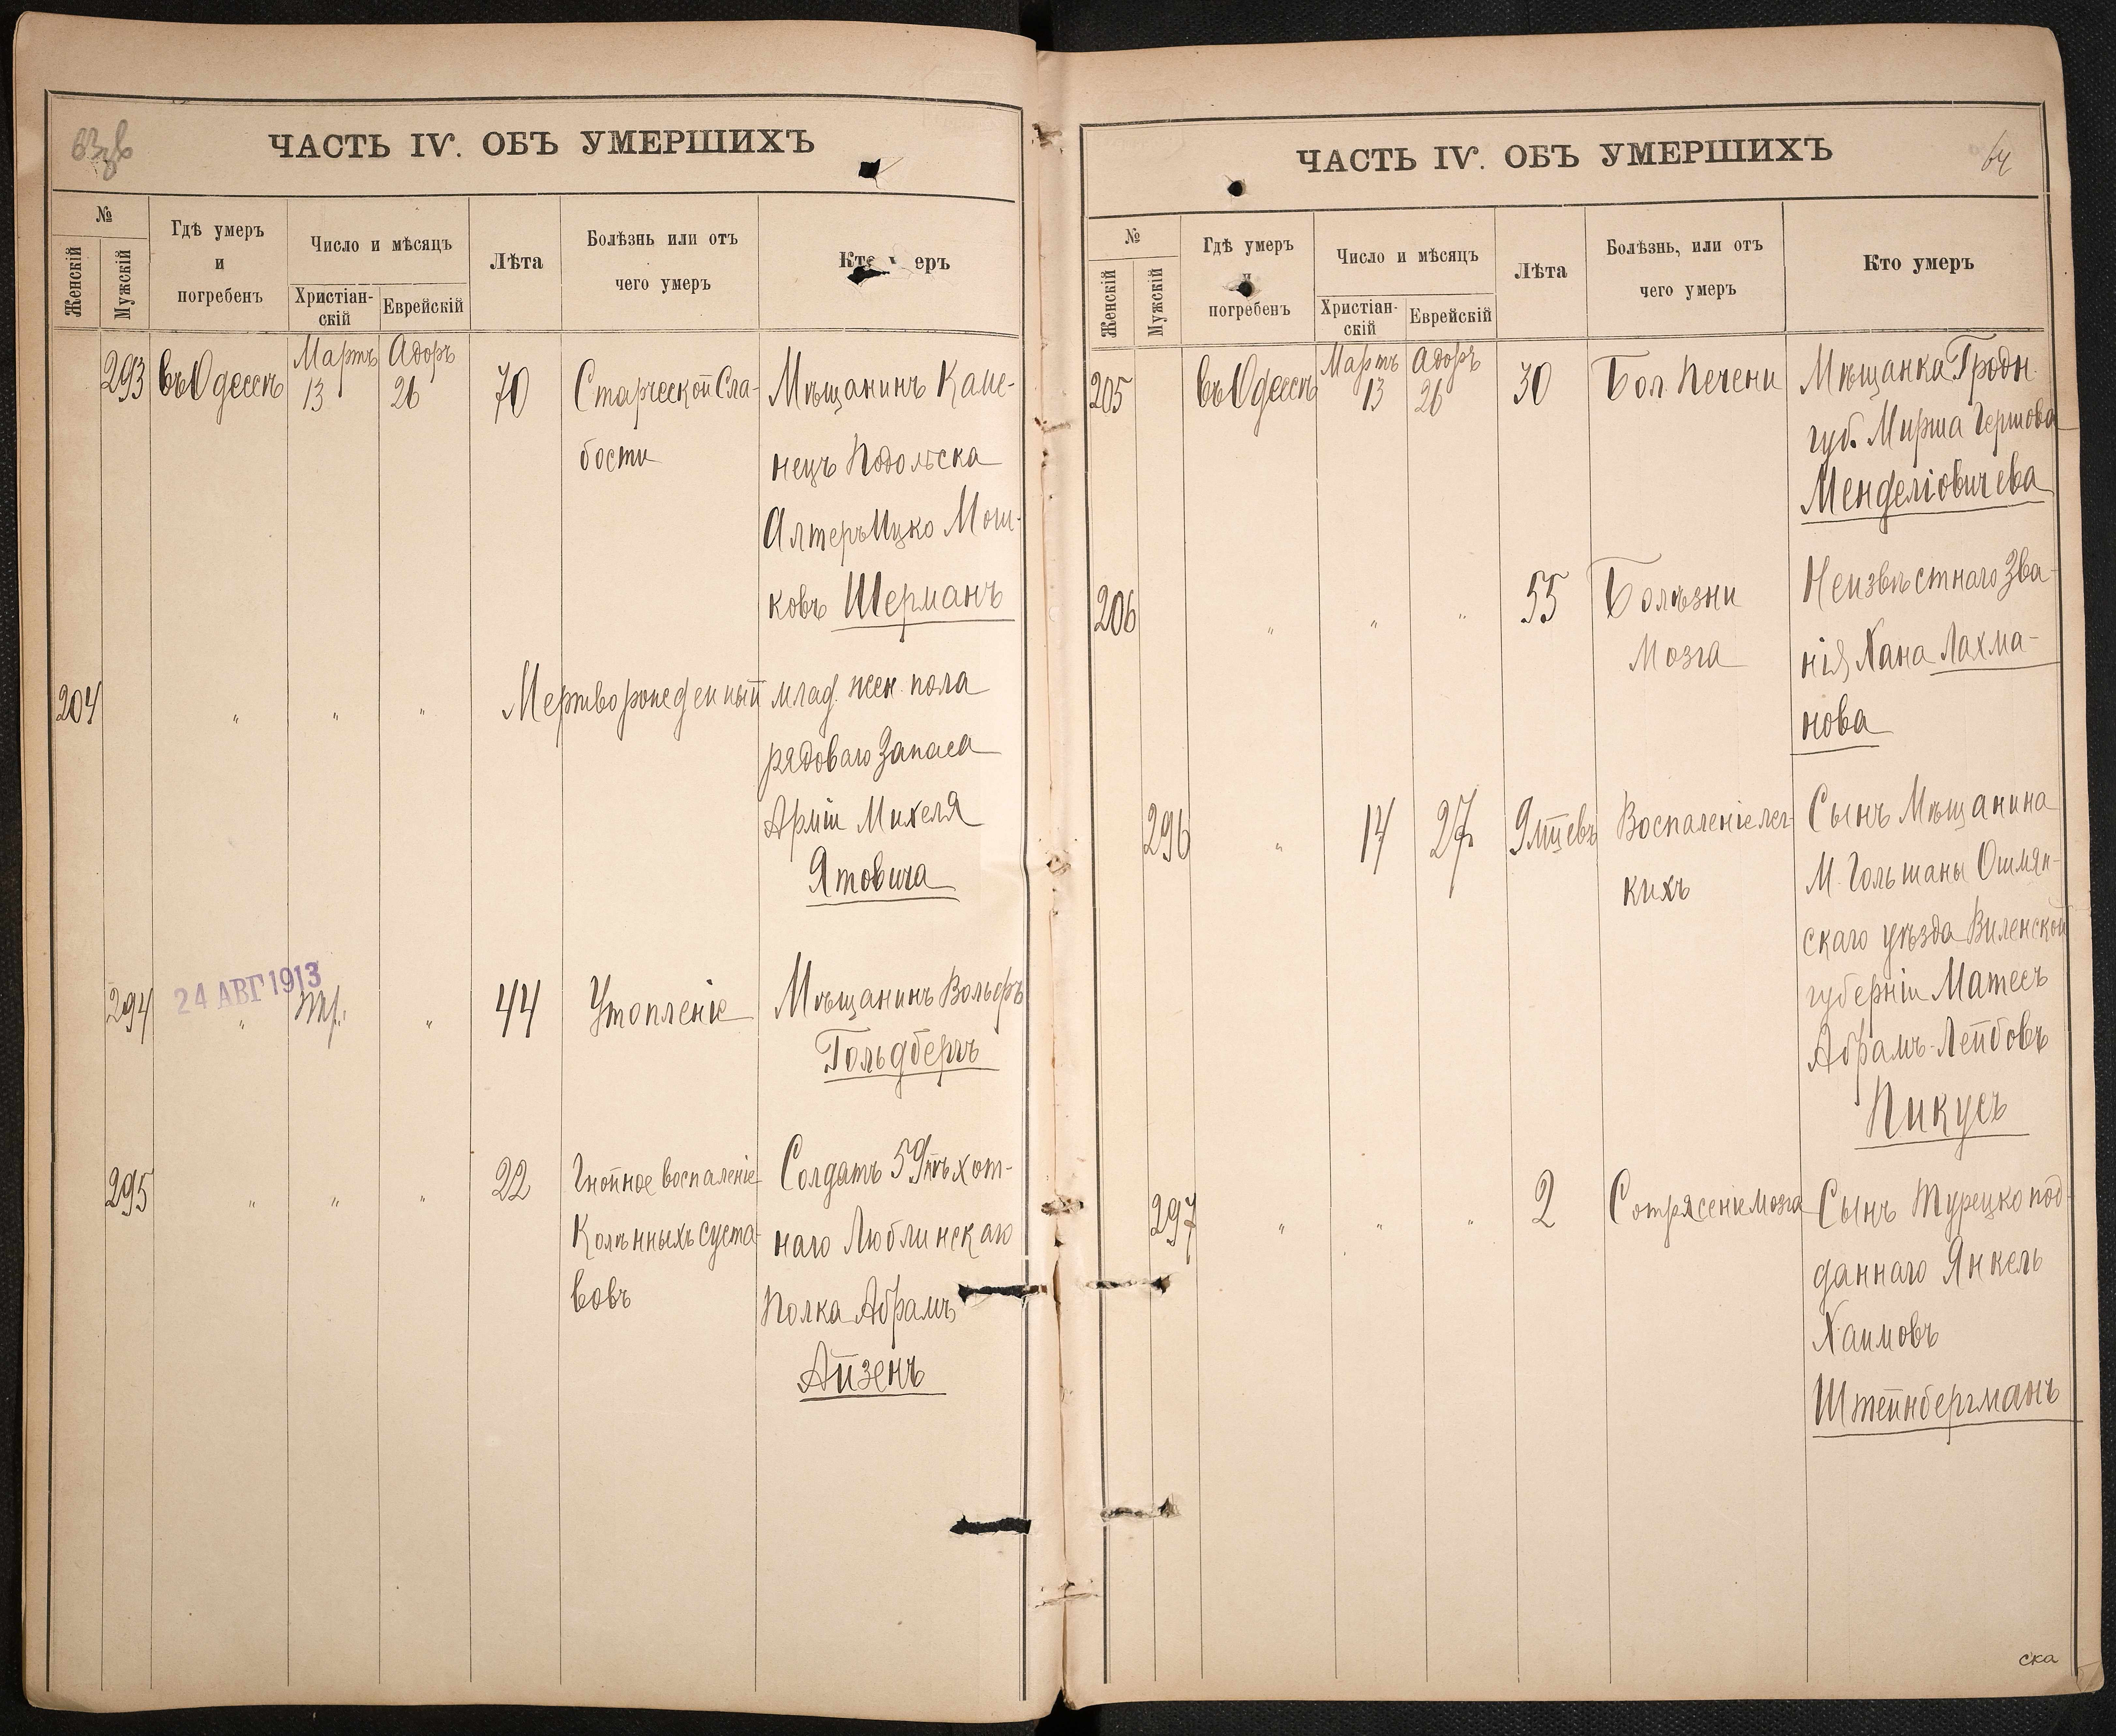 63 об
ЧАСТЬ IV. ОБЪ УМЕРШИХЪ
№
Женскій
Мужскій
Гдѣ умеръ
и
погребенъ
Число и мѣсяцъ
Христіан-
скій
Еврейскій
Лѣта
Болѣзнь или отъ
чего умеръ
Кто еръ
293 въ Одессѣ Мартъ 13 Адоръ 26 70 Старческой Сла- Мѣщанинъ Каме-
бости нецъ Подольска
Алтеръ Ицко Мош-
ковъ Шерманъ
204 " " " Мертворожденный млад. жен. пола
рядового Запаса
Арміи Михеля
Ятовича
24 АВГ 1913
294 " " 44 Утопленіе Мѣщанинъ Вольфъ
Гольдбергъ
295 " " " 22 Гнойное воспаленіе Солдатъ 59 пѣхот-
Колѣнныхъ суста- наго Люблинскаго
вовъ Полка Абрамъ
Айзенъ
ЧАСТЬ IV. ОБЪ УМЕРШИХЪ
64
№
Женскій
Мужскій
Гдѣ умеръ
и
погребенъ
Число и мѣсяцъ
Христіан-
скій
Еврейскій
Лѣта
Болѣзнь, или отъ
чего умеръ
Кто умеръ
205 въ Одессѣ Мартъ 13 Адоръ 26 30 Бол. Печени Мѣщанка Гродн.
губ. Мирша Гершова
Менделіовичева
206 " " " 55 Болѣзни Неизвѣстнаго Зва-
Мозга нія Хана Лахма-
нова
296 " 14 27 9 мцевъ Воспаленіе лег- Сынъ Мѣщанина
кихъ М. Гольшаны Ошмян-
скаго уѣзда Виленской
губерніи Матесъ
Абрамъ-Лейбовъ
Пикусъ
297 " " " 2 Сотрясеніе мозга Сынъ Турецко под-
даннаго Янкель
Хаимовъ
Штейнбергманъ
ска